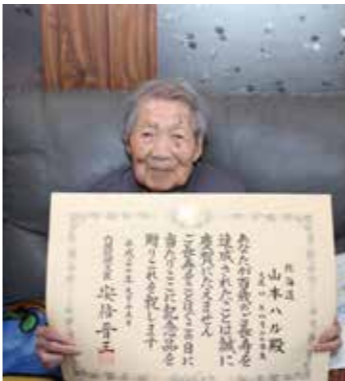 北海道
山本ハル殿
あなたが百歳のご長寿を
達成されたことは誠に
慶賀にたえません
ご長寿をことほぐ日に
当たりここに記念品を
贈りこれを祝します
内閣総理大臣 安倍晋三